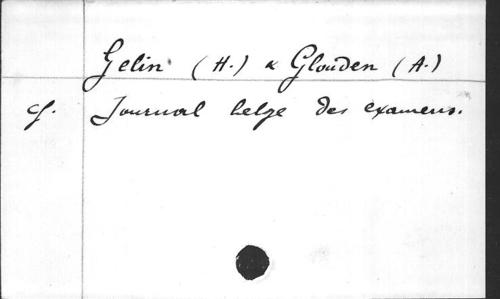 Gelin (H.) & Glouden (A.)
cf. Journal belge des examens.